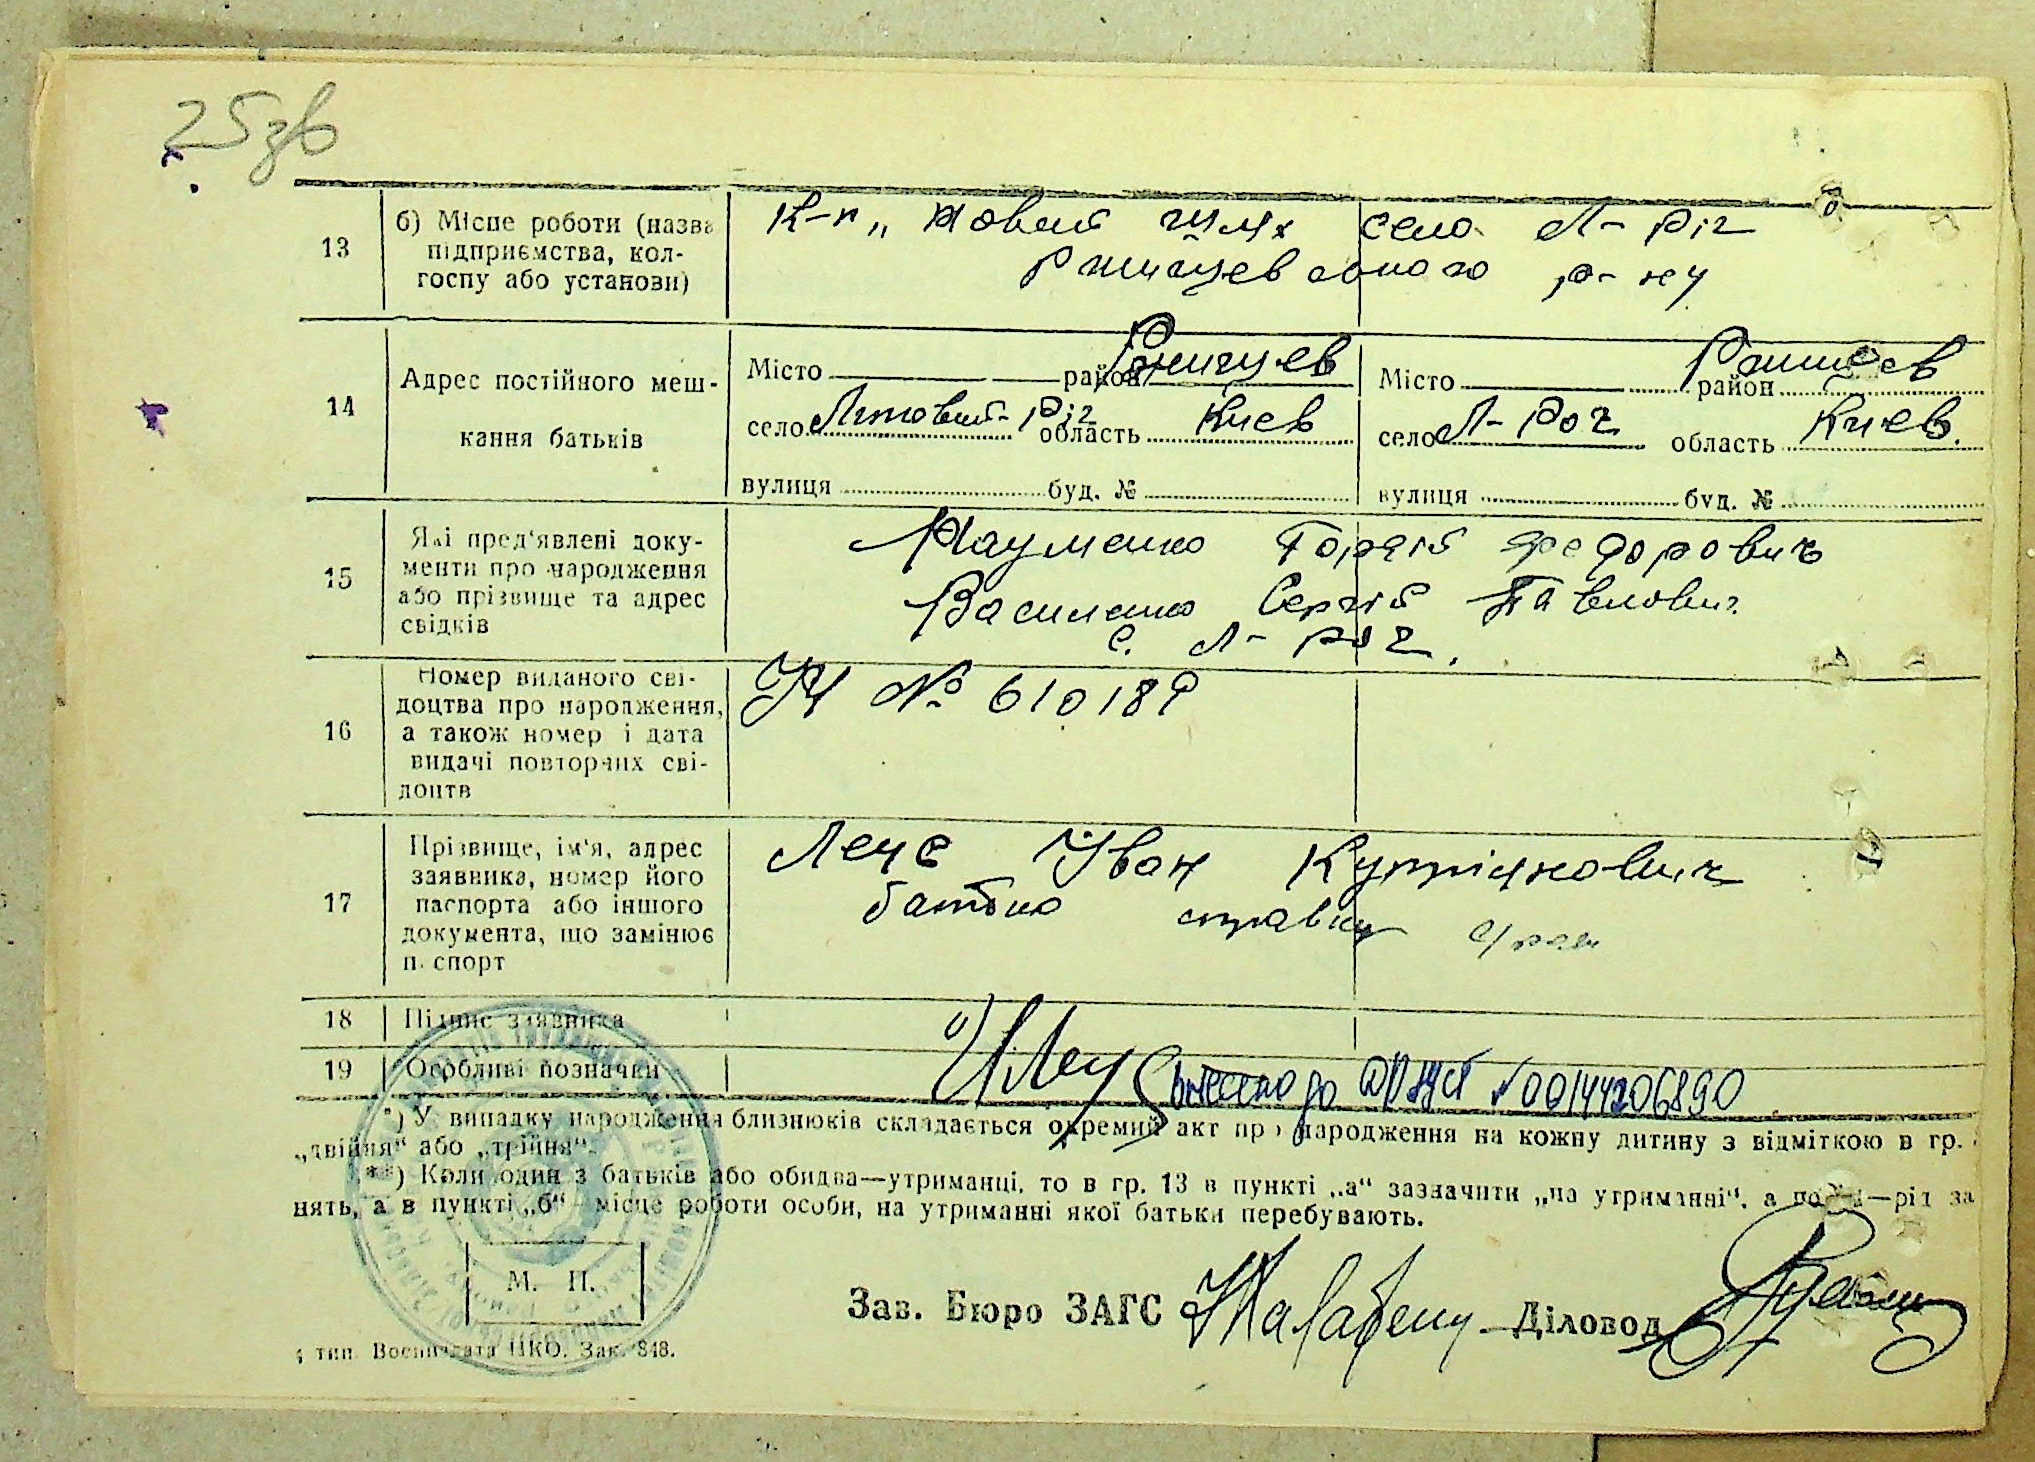 25зв
13
б) Місце роботи (назва підприємства, колгоспу або установи)
К-п „Новий шлях село Л-Ріг
Ржищевського р-ну
14
Адрес постійного меш-
кання батьків
Місто район Ржищев
село Липовий-Ріг область Киев
вулиця буд. №
Місто район Ржищев
село Л-Рог область Киев.
вулиця буд. №
15
Які пред'явлені доку-
менти про народження
або прізвище та адрес
свідків
Науменко Гордій Федорович
Василенко Сергій Павлович
с. Л-Рог.
16
Номер виданого сві-
доцтва про народження,
а також номер і дата
видачі повторних сві-
доцтв
№ 610189
17
Прізвище, ім'я, адрес
заявника, номер його
паспорта або іншого
документа, що замінює
паспорт
Иван
батько справку с/рады
18
Підпис заявника
19
Особливі позначки
внесено до ДРАЦСГ №00144206890
*) У випадку народження близнюків складається окремий акт про народження на кожну дитину з відміткою в гр.
„двійня“ або „трійня“.
**) Коли один з батьків або обидва—утриманці, то в гр. 13 в пункті „а“ зазначити „на утриманні“, а поруч—рід за
нять, а в пункті „б“ - місце роботи особи, на утриманні якої батьки перебувають.
М. П.
Зав. Бюро ЗАГС
Діловод
тип. Воениздата НКО. Зак. 848.